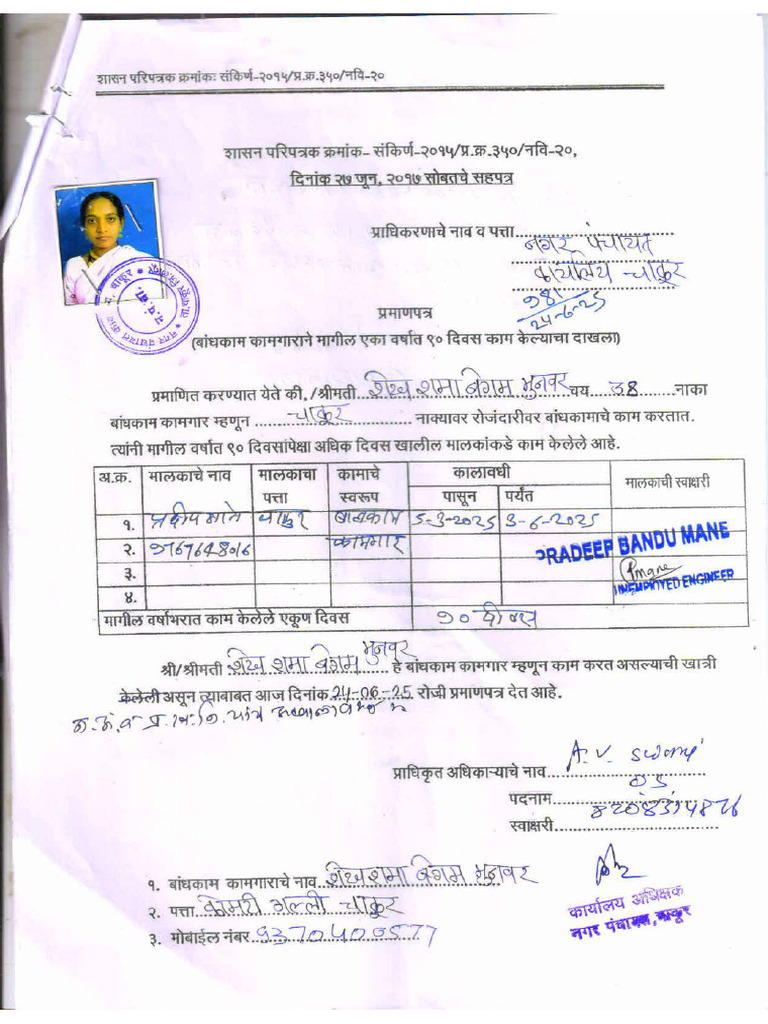 शासन परिपत्रक क्रमांकः संकिर्ण-२०१५/प्र.क्र.३५०/नवि-२०
शासन परिपत्रक क्रमांक- संकिर्ण-२०१५/प्र.क्र.३५०/नवि-२०,
दिनांक २७ जून, २०१७ सोबतचे सहपत्र
प्राधिकरणाचे नाव व पत्ता नगर पंचायत
कार्यालय चाकूर
प्रमाणपत्र
24-6-25
(बांधकाम कामगाराने मागील एका वर्षात ९० दिवस काम केल्याचा दाखला)
प्रमाणित करण्यात येते की, /श्रीमती शेख शमा बेगम मुनवर वय 38 नाका
बांधकाम कामगार म्हणून चाकूर नाक्यावर रोजंदारीवर बांधकामाचे काम करतात.
त्यांनी मागील वर्षात ९० दिवसांपेक्षा अधिक दिवस खालील मालकांकडे काम केलेले आहे.
अ.क्र. मालकाचे नाव मालकाचा पत्ता कामाचे स्वरूप कालावधी पासून पर्यंत मालकाची स्वाक्षरी
१. प्रदीप माने चाकूर बांधकाम 5-3-2025 3-6-2025
२. 9767648016 कामगार PRADEEP BANDU MANE
३. Pmane
४. UNEMPLOYED ENGINEER
मागील वर्षाभरात काम केलेले एकूण दिवस ९० दिवस
श्री/श्रीमती शेख शमा बेगम मुनवर हे बांधकाम कामगार म्हणून काम करत असल्याची खात्री
केलेली असून त्याबाबत आज दिनांक 24-06-25 रोजी प्रमाणपत्र देत आहे.
प्राधिकृत अधिकाऱ्याचे नाव A.V. Swami
पदनाम OS
स्वाक्षरी
१. बांधकाम कामगाराचे नाव शेख शमा बेगम मुनवर
२. पत्ता गल्ली चाकूर
३. मोबाईल नंबर
कार्यालय अधिक्षक
नगर पंचायत, चाकूर